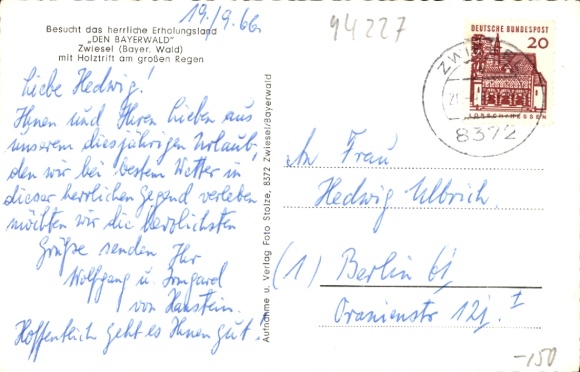 19./9.66
94227
Besucht das herrliche Erholungsland
„DEN BAYERWALD"
Zwiesel (Bayer. Wald)
mit Holztrift am großen Regen
Liebe Hedwig!
Ihnen und Ihren Lieben aus
unserem diesjährigen Urlaub,
den wir bei bestem Wetter in
dieser herrlichen Gegend verleben
möchten wir die herzlichsten
Grüße senden Ihr
Wolfgang u. Irmgard
von Hanstein.
Hoffentlich geht es Ihnen gut.
Aufnahme u. Verlag Foto Stolze, 8372 Zwiesel/Bayerwald
DEUTSCHE BUNDESPOST
20
LORSCH/HESSEN
ZWIESEL
21
8372
An Frau
Hedwig Ulbrich
(1) Berlin 61
Oranienstr 121. I
-150